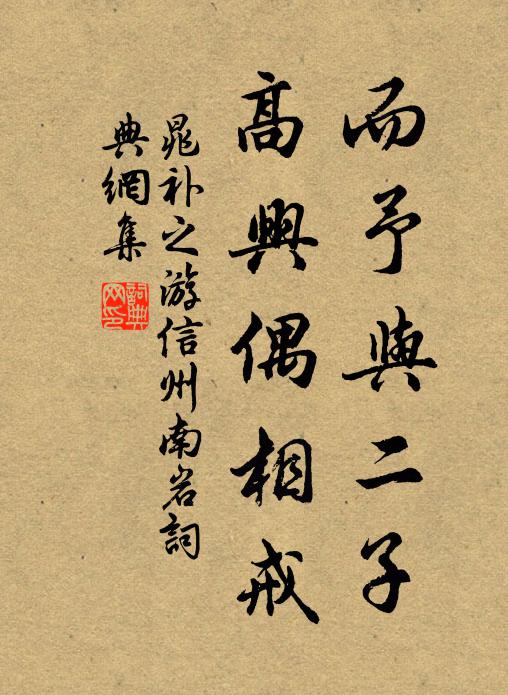 而予與二子
高興偶相戒
晁补之游信州南岩詞
典網集
詞典網印